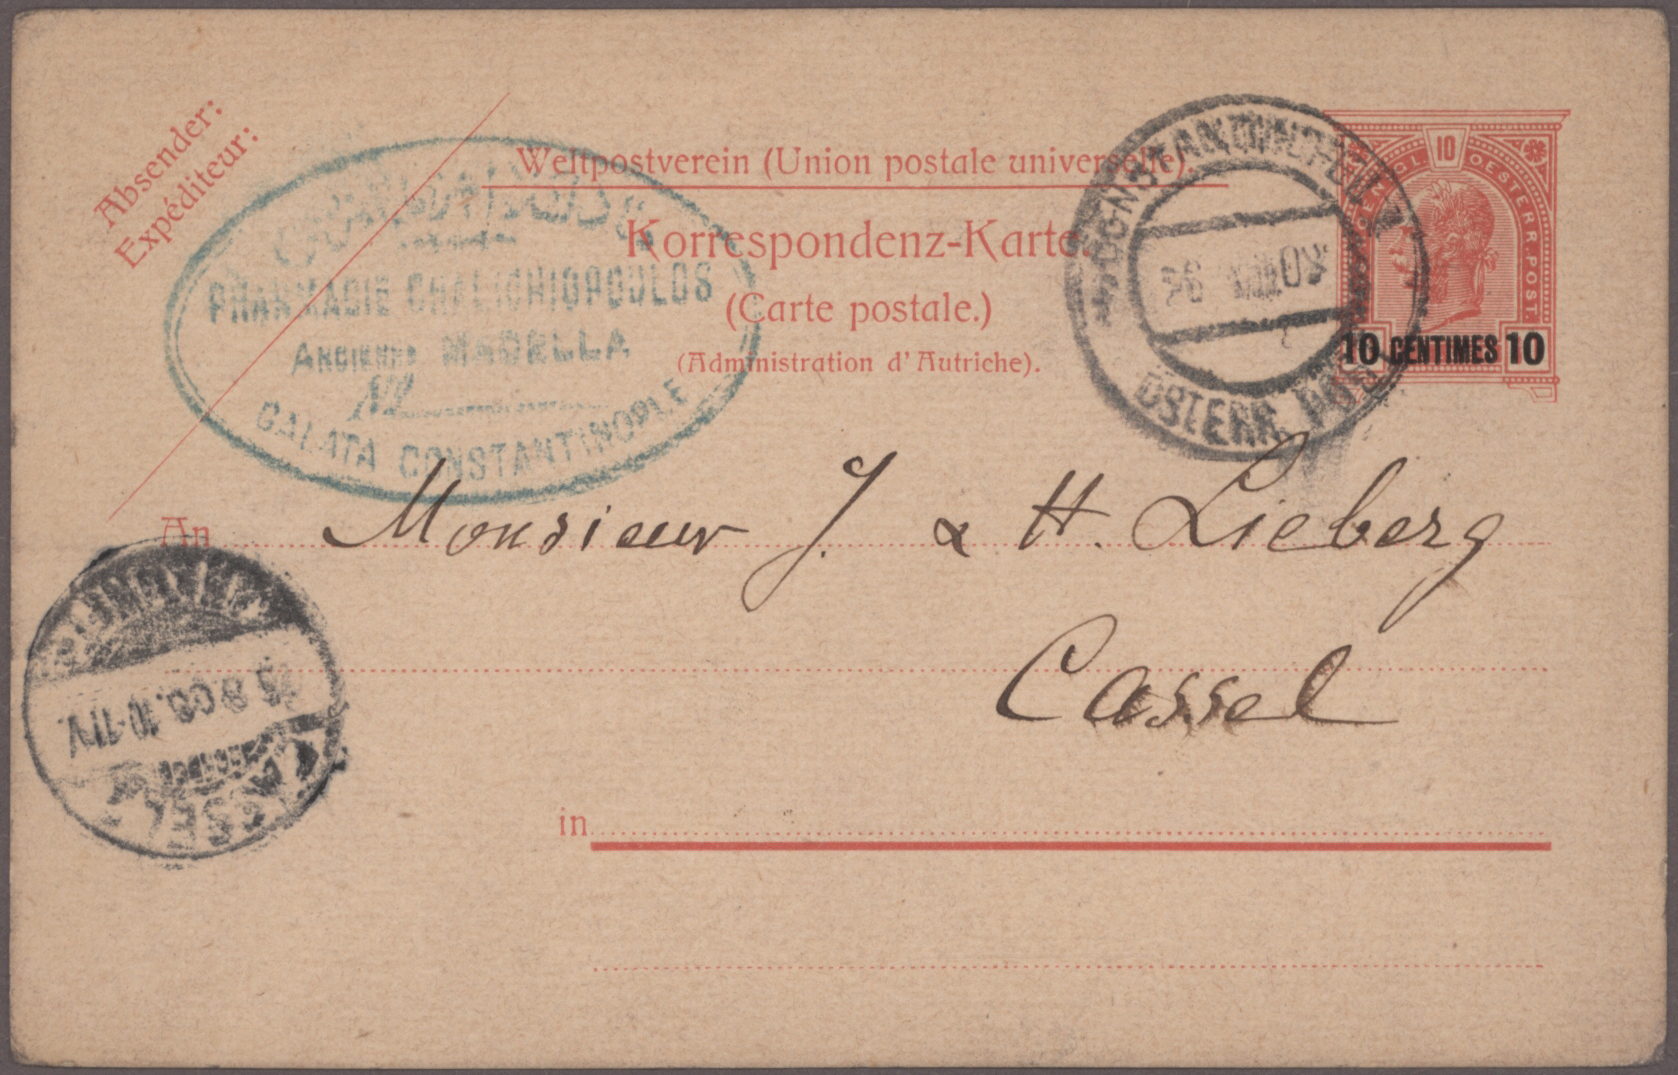 Absender:
Expéditeur:
Weltpostverein (Union postale universelle).
Korrespondenz-Karte.
(Carte postale.)
(Administration d'Autriche).
PHARMACIE CHALICHIOPOULOS
ANCIENNE MADELLA
GALATA CONSTANTINOPLE
CONSTANTINOPEL
ÖSTERR. POST
10
OESTERR. POST.
10 CENTIMES 10
An Monsieur J. & H. Lieberg
Cassel
in
8 08. 10-11V.
CASSEL